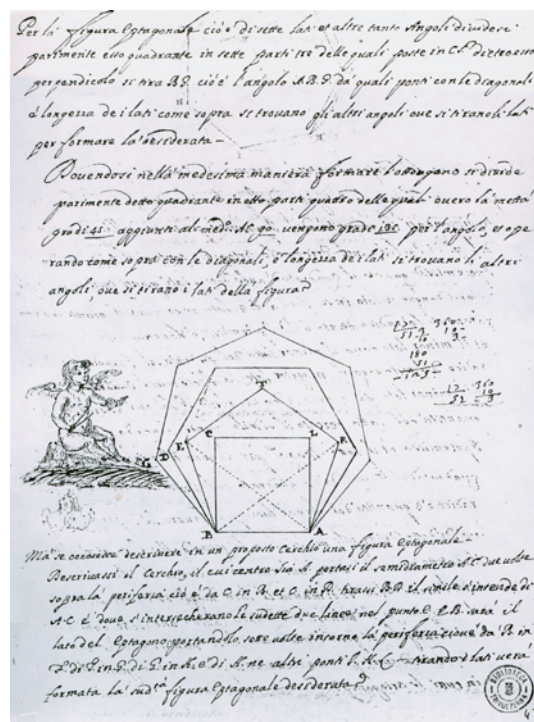 Per la figura Eptagonale ciò è di sette lati et altre tante Angoli dividere
parimente esso quadrante in sette parti tre delle quali poste in C.F. dietro esso
perpendicolo si tira B.D. ciò è l'angolo A.B.D. da quali ponti con le diagonali
è longezza de i lati come sopra si trovano gli altri angoli ove si tirano li lati
per formare la desiderata
Dovendosi nella medesima maniera formare l'ottongano si divide
parimente detto quadrante in otto parti quatro delle quali overo la mettà
gradi 45 aggionti al med.º 90 vengono gradi 135 per l'angolo, et ope
rando come sopra con le diagonali, è longezza de i lati si trovano li altri
angoli, ove si tirano i lati della figura
180
51
T
E
C
L
F
G
D
B
A
Ma se occoresse descrivere in un proposto Cerchio una figura Eptagonale
Descrivassi il Cerchio, il cui centro sia A. portasi il semidiametro A.C. due volte
sopra la periferia ciò è da C. in B. et C. in D. tirassi B.D. il simile s'intende di
A.C. è dove s'intersecherano le sudette due linee nel punto E. è B. sarà il
lato del Eptagono portandolo sette volte intorno la periferia cioue da B. in
F. di F. in G. di G. in H. è di H. ne altri ponti tirando i lati verà
formata la sud.ta figura Eptagonale desiderata
BIBLIOTECA